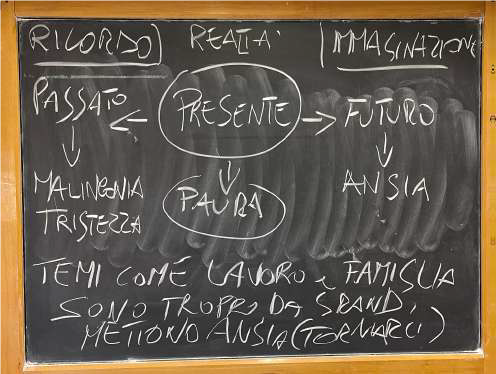 RICORDO REALTA' IMMAGINAZIONE
PASSATO ← PRESENTE → FUTURO
↓ ↓ ↓
MALINCONIA PAURA ANSIA
TRISTEZZA
TEMI COME LAVORO e FAMIGLIA
SONO TROPPO DA GRANDI,
METTONO ANSIA (TORNARCI)